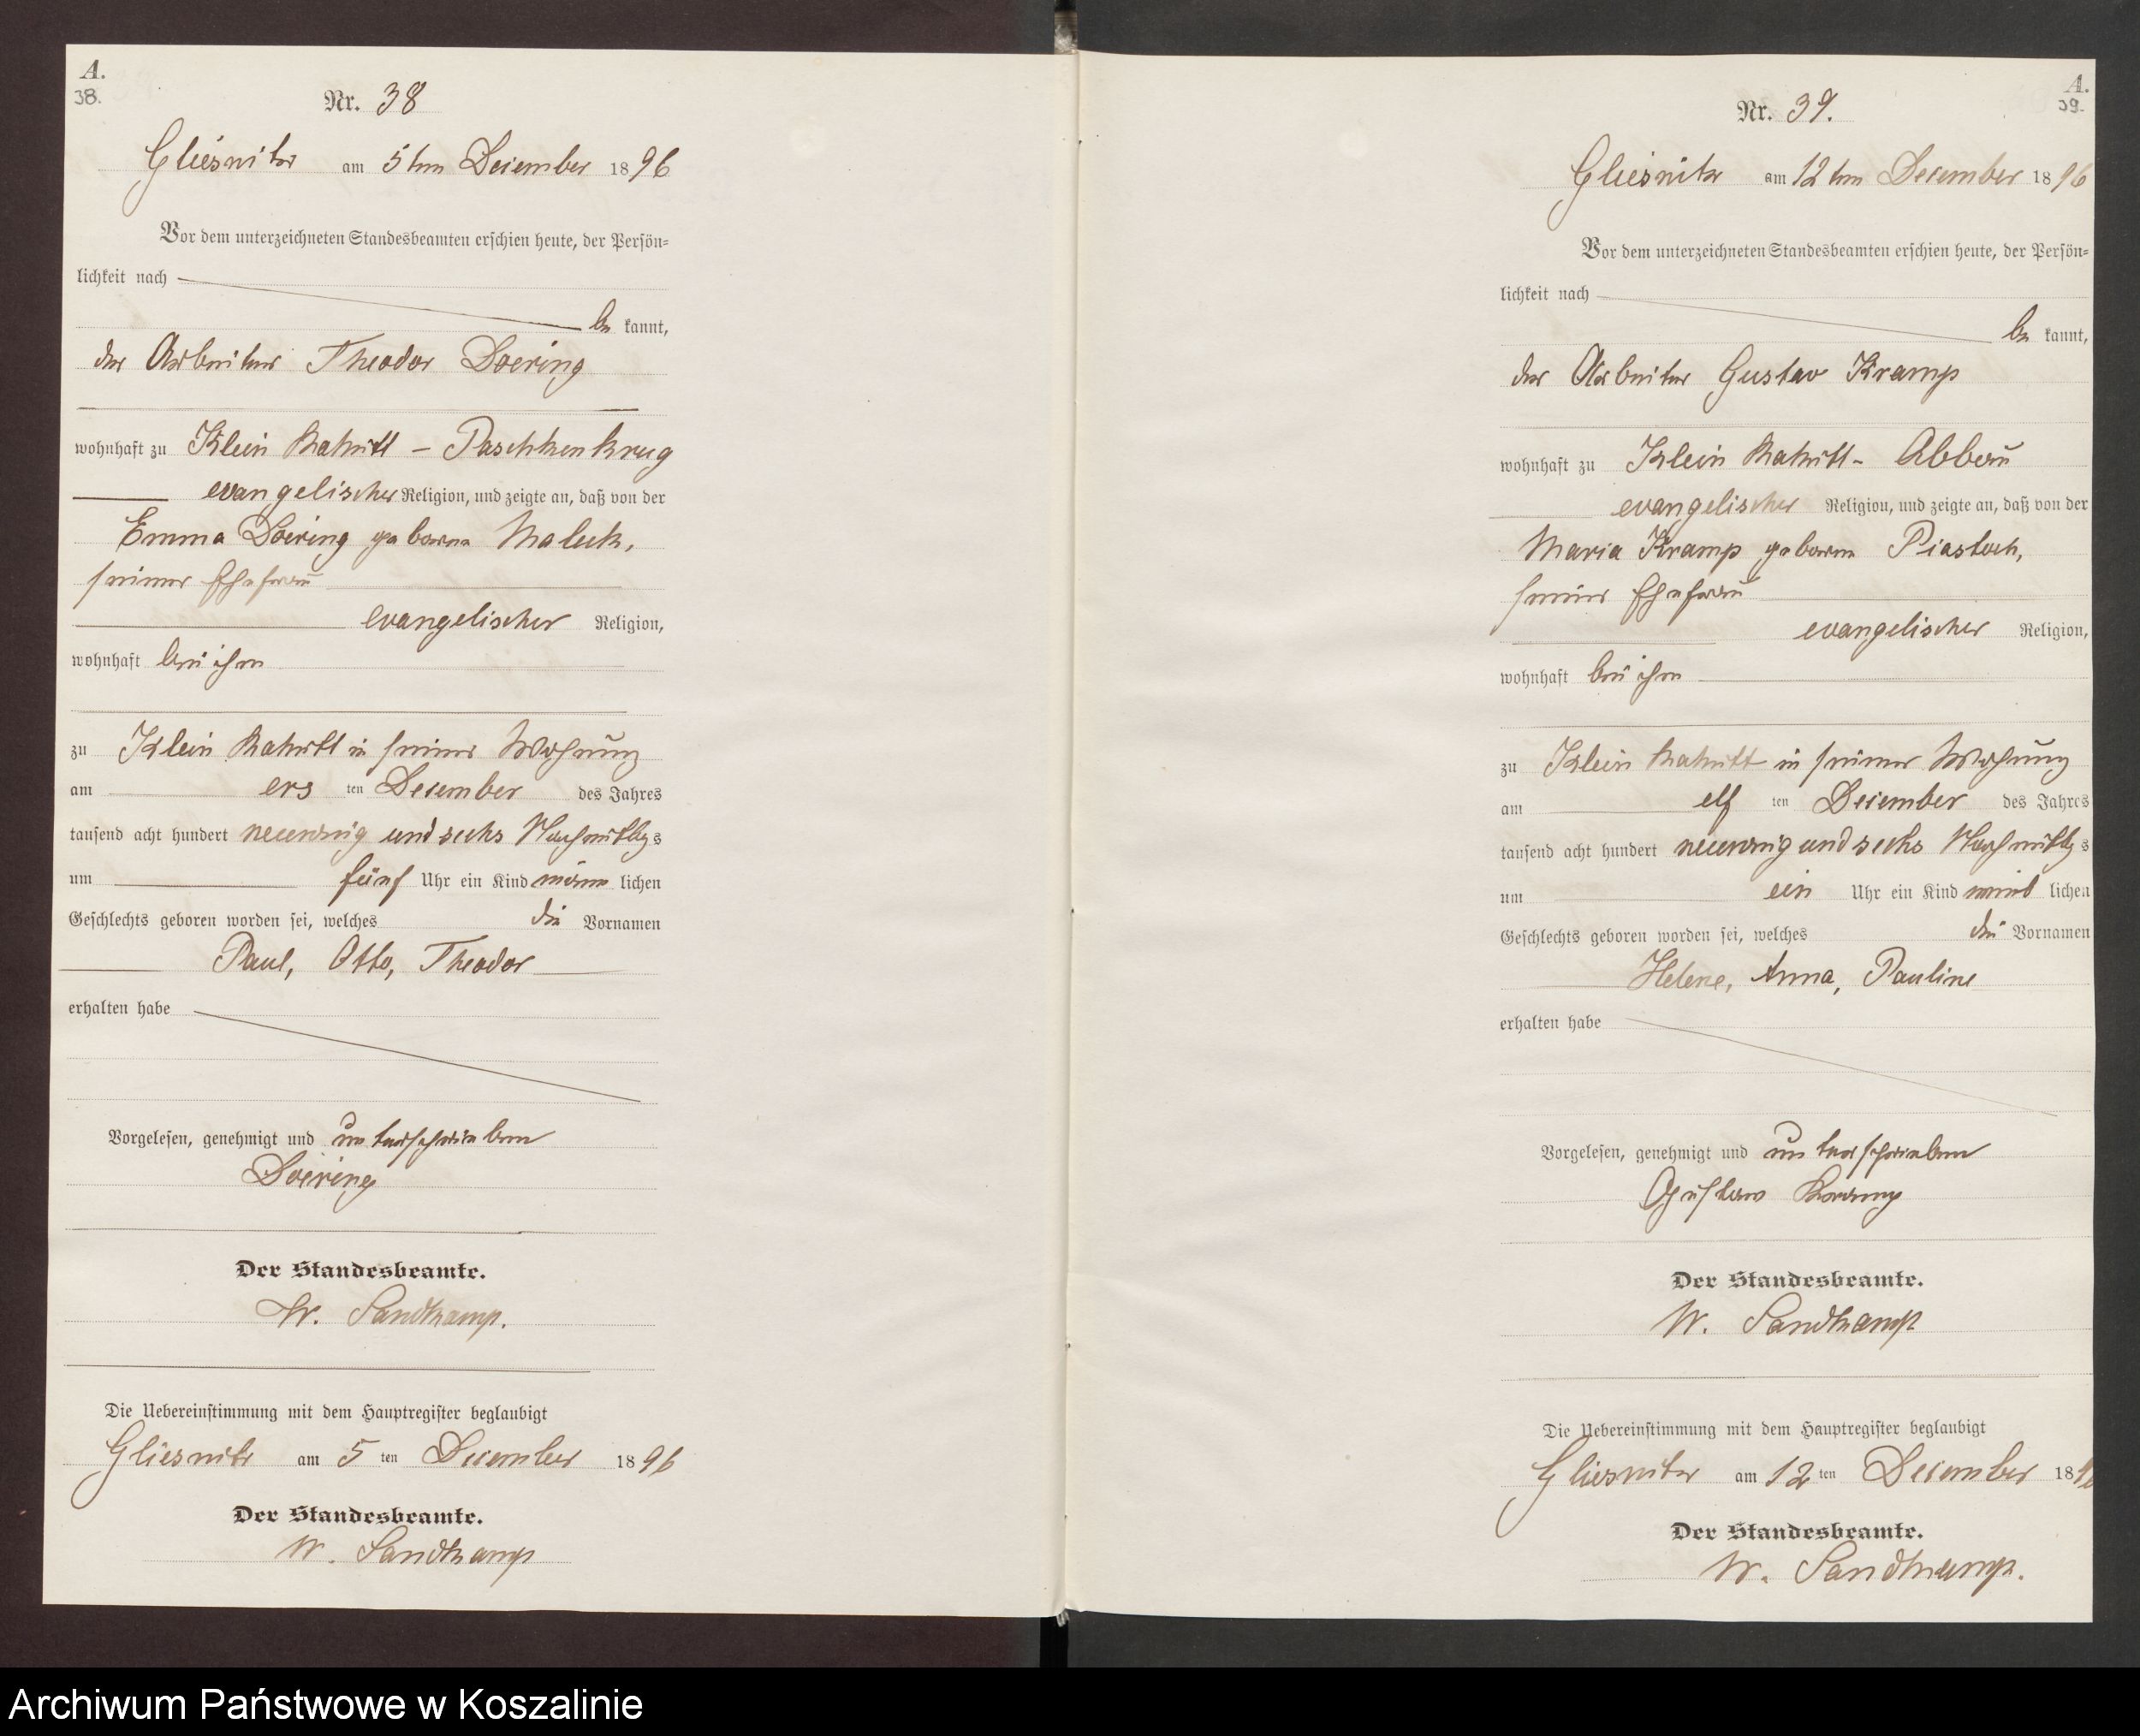 A.
38.
Nr. 38
Gliesnitz am 5ten December 1896
Vor dem unterzeichneten Standesbeamten erschien heute, der Persön-
lichkeit nach
be kannt,
der Arbeiter Theodor Doering
wohnhaft zu Klein Rakitt - Paschkenkrug
evangelischer Religion, und zeigte an, daß von der
Emma Doering geborne Maleck,
seiner Ehefrau
evangelischer Religion,
wohnhaft bei ihm
zu Klein Rakitt in seiner Wohnung
am ers ten December des Jahres
tausend acht hundert neunzig und sechs Nachmittags
um fünf Uhr ein Kind männ lichen
Geschlechts geboren worden sei, welches die Vornamen
Paul, Otto, Theodor
erhalten habe
Vorgelesen, genehmigt und unterschrieben
Doering
Der Standesbeamte.
W. Sandkamp.
Die Uebereinstimmung mit dem Hauptregister beglaubigt
Gliesnitz am 5 ten December 1896
Der Standesbeamte.
W. Sandkamp
A.
39.
Nr. 39.
Gliesnitz am 12ten December 1896
Vor dem unterzeichneten Standesbeamten erschien heute, der Persön-
lichkeit nach
be kannt,
der Arbeiter Gustav Kramp
wohnhaft zu Klein Rakitt- Abbau
evangelischer Religion, und zeigte an, daß von der
Maria Kramp geborne Piastoch,
seiner Ehefrau
evangelischer Religion,
wohnhaft bei ihm
zu Klein Rakitt in seiner Wohnung
am elf ten December des Jahres
tausend acht hundert neunzig und sechs Nachmittags
um ein Uhr ein Kind weib lichen
Geschlechts geboren worden sei, welches die Vornamen
Helene, Anna, Pauline
erhalten habe
Vorgelesen, genehmigt und unterschrieben
Gustav Kramp
Der Standesbeamte.
W. Sandkamp
Die Uebereinstimmung mit dem Hauptregister beglaubigt
Gliesnitz am 12 ten December 1896
Der Standesbeamte.
W. Sandkamp.
Archiwum Państwowe w Koszalinie